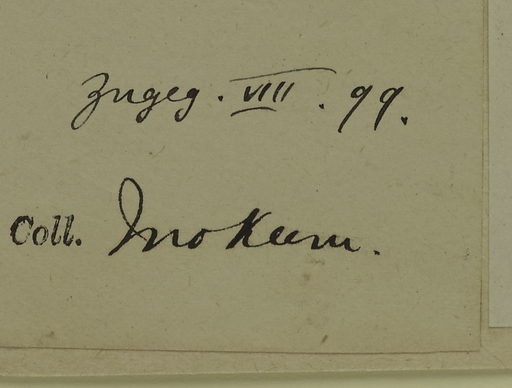 Zugeg. VIII. 99.
Coll. Inokum.